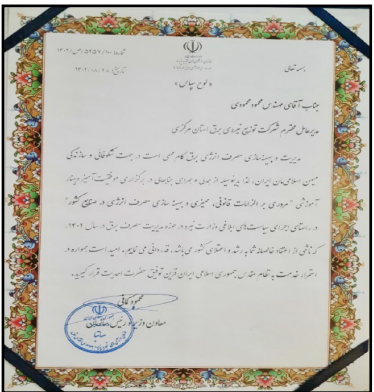 بسمه تعالی
« لوح سپاس »
جناب آقای مهندس محمود محمودی
مدیرعامل محترم شرکت توزیع نیروی برق استان مرکزی
مدیریت و بهینه سازی مصرف انرژی برق گام مهمی است در جهت شکوفائی و سازندگی
میهن اسلامی مان ایران، لذا بدینوسیله از جنابعالی در برگزاری موفقیت آمیز وبینار
آموزشی " مروری بر الزامات قانونی، ممیزی و بهینه سازی مصرف انرژی در صنایع کشور "
در راستای اجرای سیاست های ابلاغی وزارت نیرو در حوزه مدیریت مصرف برق در سال ۱۴۰۲
که ناشی از اعتقاد خالصانه شما به رشد و اعتلای کشور می باشد، قدردانی می نمایم. امید است همواره در
استمرار خدمت به نظام مقدس جمهوری اسلامی ایران قرین توفیق حضرت احدیت قرار گیرید.
معاون وزیر و رئیس سازمان
ساتبا